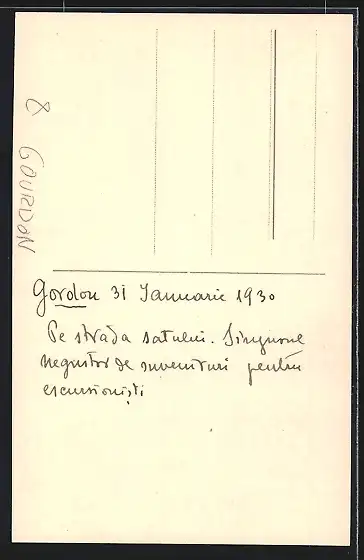 8 GOURDON
Gordon 31 Ianuarie 1930
Pe strada satului. Singurul
negustor de suveniruri pentru
escursioniști